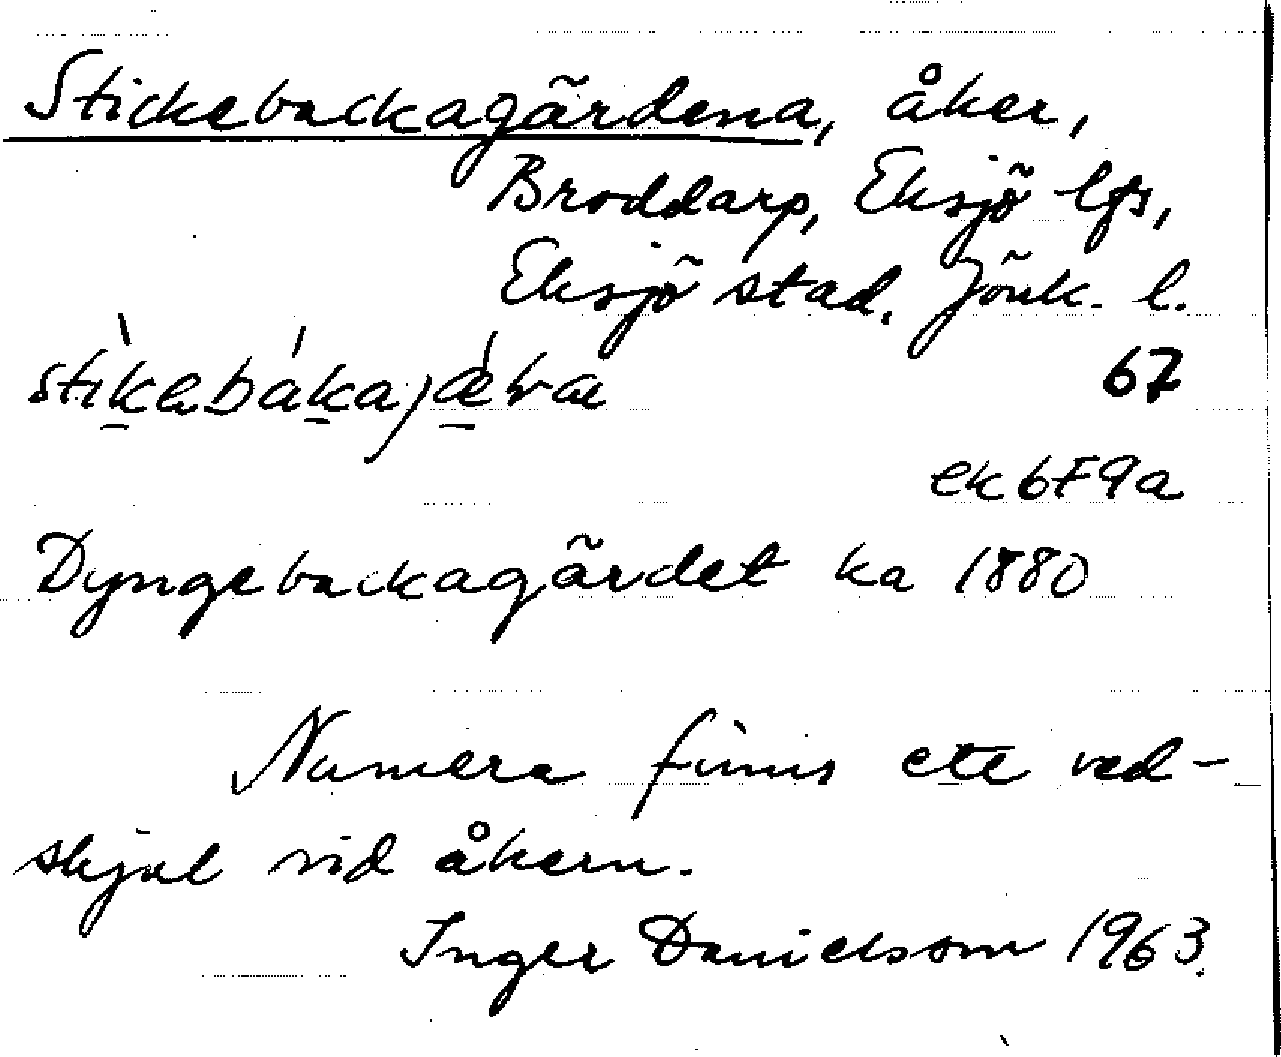 Stickebackagärdena, åker,
Broddarp, Eksjö lfs,
Eksjö stad. Jönk. l.
67
ek 6F9a
Dyngebackagärdet ka 1880
Numera finns ett ved-
skjul vid åkern.
Inger Danielsson 1963.